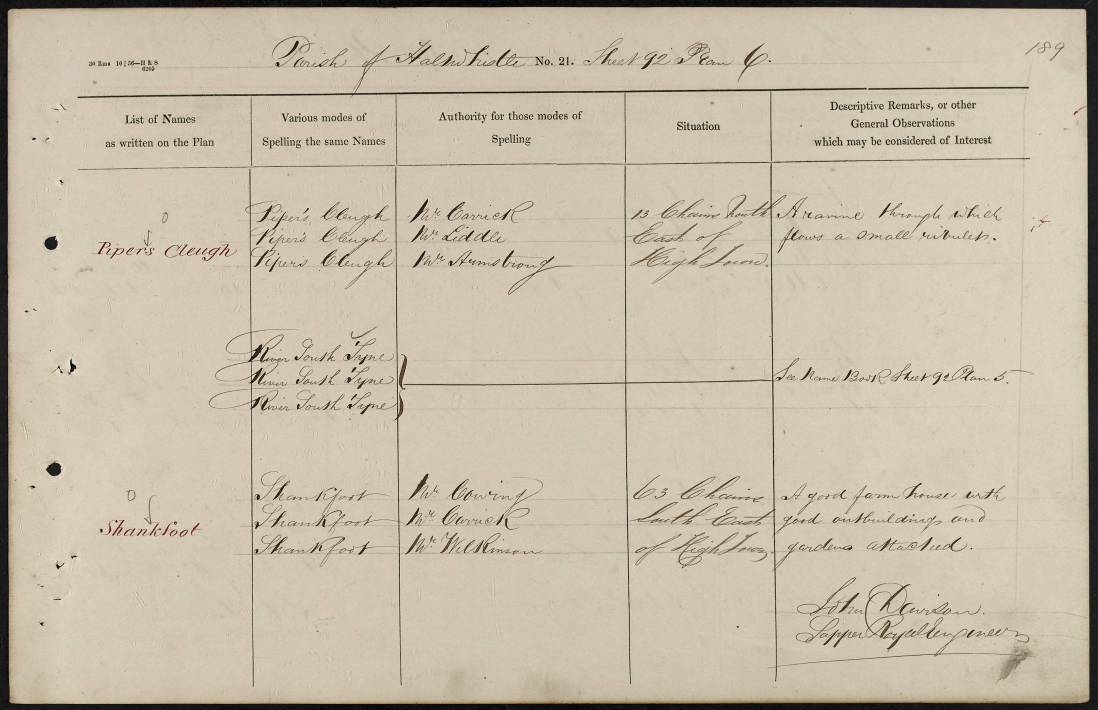 189
30 Rms 10 | 56—H & S
6205
Parish of Haltwhistle No. 21. Sheet 92 Plan 6.
List of Names
as written on the Plan
Various modes of
Spelling the same Names
Authority for those modes of
Spelling
Situation
Descriptive Remarks, or other
General Observations
which may be considered of Interest
Piper's Cleugh
Piper's Cleugh Mr. Carrick 13 Chains South A ravine through which
Piper's Cleugh Mr. Liddle East of flows a small rivulet.
Piper's Cleugh Mr. Armstrong High Town.
River South Tyne
River South Tyne See Name Book Sheet 92 Plan 5.
River South Tyne
Shankfoot
Shankfoot Mr. Cowing 63 Chains A good farm house with
Shankfoot Mr. Carrick South East good outbuildings and
Shankfoot Mr. Wilkinson of High Town. gardens attached.
John Davison.
Sapper Royal Engineers